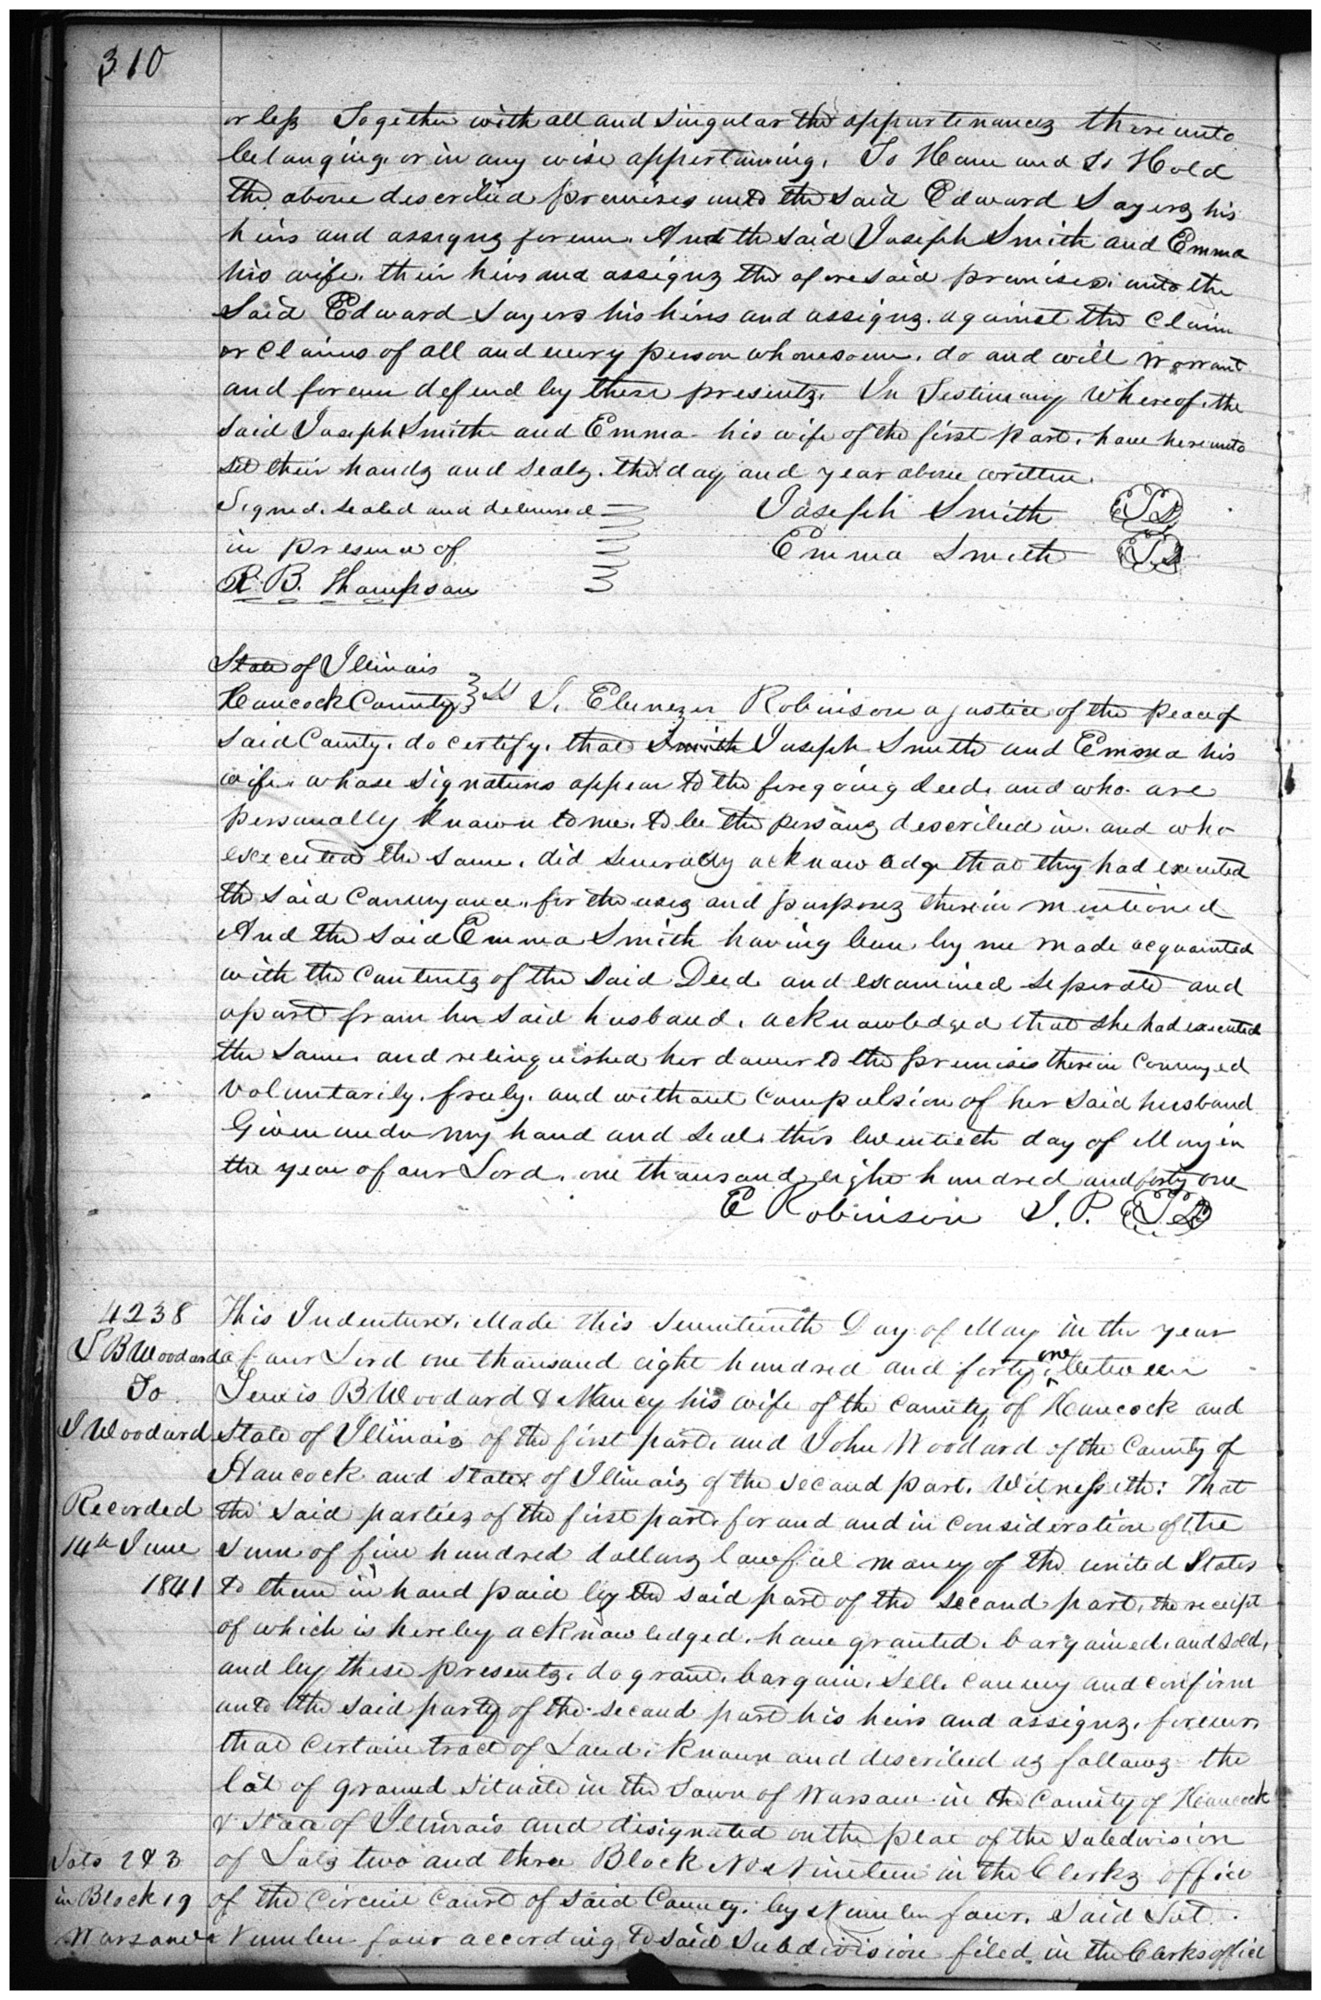 310
or less Together with all and singular the appurtenances thereunto
belonging or in any wise appertaining. To Have and to Hold
the above described premises unto the said Edward Sayers his
heirs and assigns forever. And the said Joseph Smith and Emma
his wife. their heirs and assigns the aforesaid premises. unto the
Said Edward Sayers his heirs and assigns. against the Claim
or Claims of all and every person whomesoever. do and will warrant
and forever defend by these presents. In Testimony Whereof. the
said Joseph Smith and Emma his wife of the first part. have hereunto
set their hands and seals. the day and year above written.
Signed. Sealed and delivered
in presence of
R. B. Thompson
Joseph Smith
Emma Smith
State of Illinois
Hancock County ss I, Ebenezer Robinson a justice of the peace of
said County. do certify. that Smith Joseph Smith and Emma his
wife. whose signatures appear to the foregoing deed. and who are
personally known to me. to be the persons described in. and who
executed the same. did severally acknowledge that they had executed
the said Conveyance. for the uses and purposes therein mentioned
And the said Emma Smith having been by me made acquainted
with the contents of the said Deed. and examined seperate and
apart from her said husband. acknowledged that she had executed
the same. and relinquished her dower to the premises therein conveyed
voluntarily. freely. and without compulsion of her said husband
Given under my hand and seal. this twentieth day of May in
the year of our Lord. one thousand eight hundred and forty one
E Robinson J. P.
4238
L B Woodard
To
J Woodard
Recorded
14th June
1841
This Indenture. Made this Seventeenth Day of May in the year
of our Lord one thousand eight hundred and forty one between
Lewis B Woodard & Nancy his wife of the County of Hancock and
State of Illinois of the first part. and John Woodard of the County of
Hancock and State of Illinois of the second part. Witnesseth: That
the said parties of the first part. for and and in consideration of the
sum of five hundred dollars lawful money of the united States
to them in hand paid by the said part of the second part. the receipt
of which is hereby acknowledged. have granted. bargained. and sold.
and by these presents. do grant. bargain. sell. convey and confirm
unto the said party of the second part his heirs and assigns. forever.
that certain tract of Land. known and described as follows the
lot of ground situate in the Town of Warsaw in the County of Hancock
& State of Illinois and designated on the plat of the subdivision
of Lots two and three Block No Nineteen in the Clerks office
of the Circuit Court of said County. by Number four. Said Lot
Number four according to said Subdivision filed in the Clerks office
Lots 2 & 3
in Block 19
Warsaw